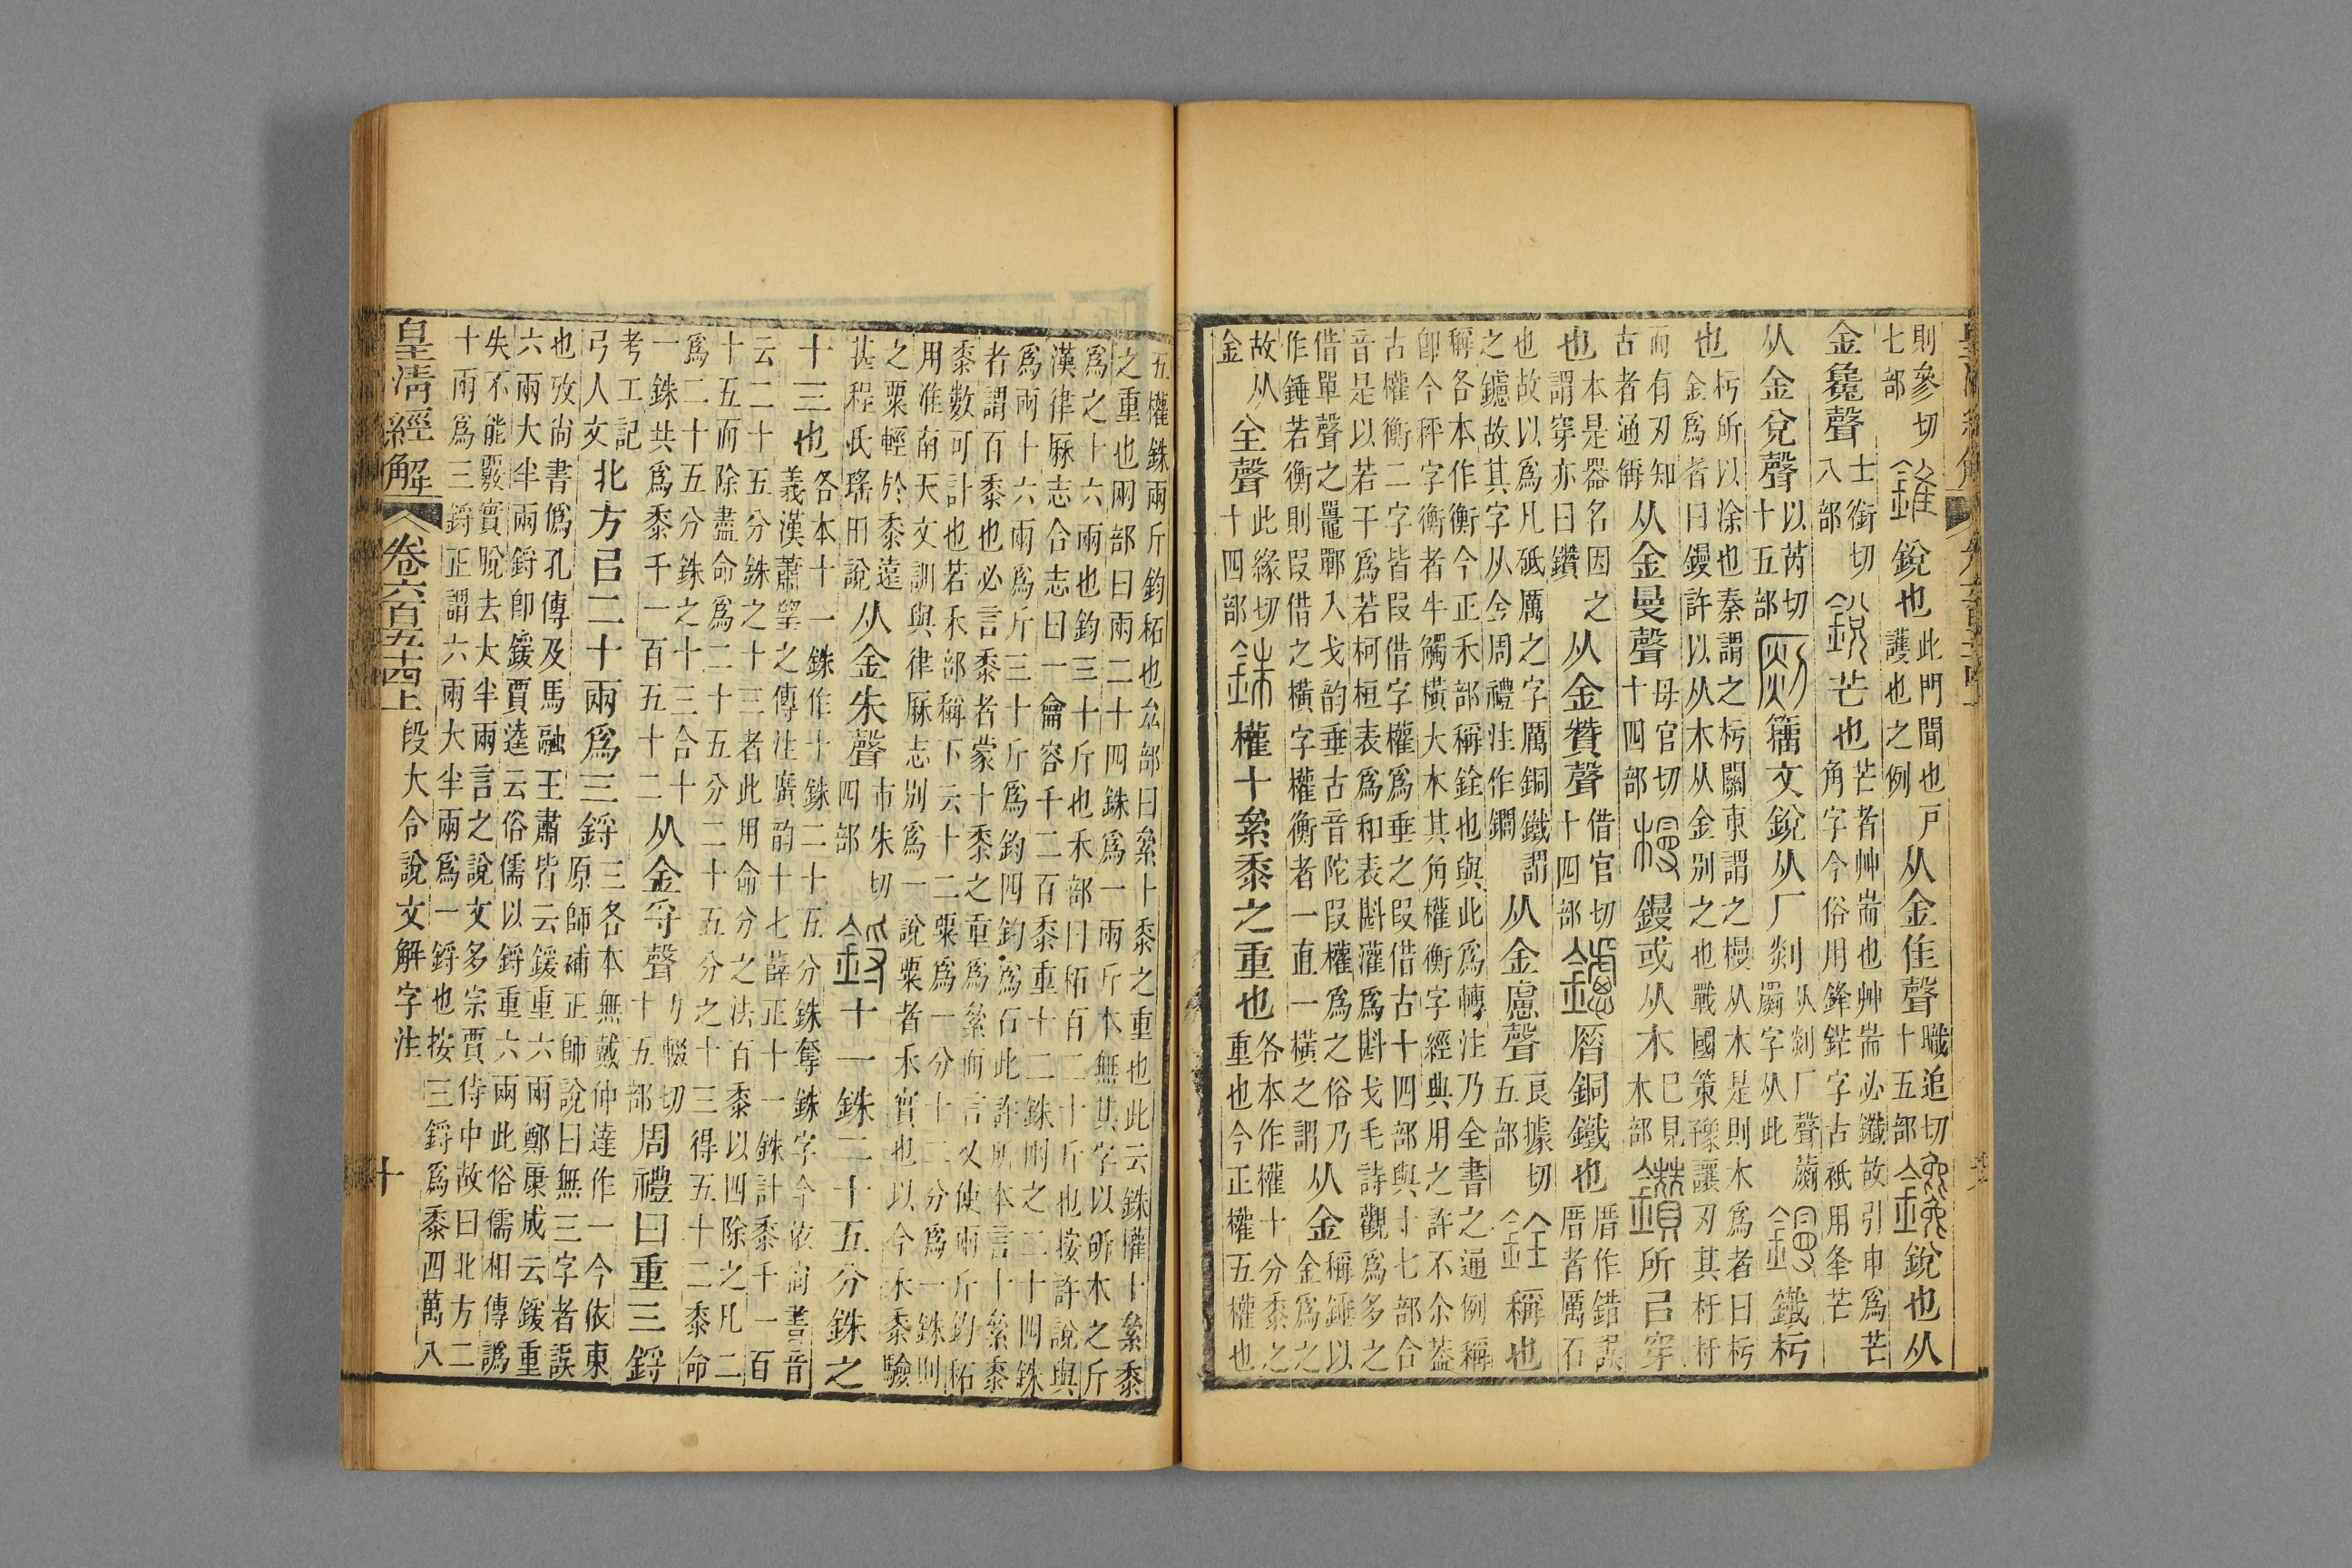 則參切七部錐銳也此門聞也戶護也之例从金隹聲職追切十五部鑱銳也从
金毚聲士銜切八部銳芒也芒者艸耑也艸耑必鑯故引申爲芒角字今俗用鋒鋩字古祇用夆芒
从金兌聲以芮切十五部籒文銳从厂剡从剡厂聲罽字从此鏝鐵杇
也杇所以涂也秦謂之杇關東謂之槾从木是則木爲者曰杇金爲者曰鏝許以从木从金別之也戰國策豫讓刃其杅杅
而有刃知古者通偁从金曼聲母官切十四部槾鏝或从木已見木部鑽所㠯穿
也本是器名因之謂穿亦曰鑽从金贊聲借官切十四部鑢厝銅鐵也厝作錯誤厝者厲石
也故以爲凡砥厲之字厲銅鐵謂之鑢故其字从金周禮注作鐧从金慮聲良據切五部銓稱也
稱各本作衡今正禾部稱銓也與此爲轉注乃全書之通例稱卽今秤字衡者牛觸橫大木其角權衡字經典用之許不尒葢
古權衡二字皆叚借字權爲垂之叚借古十四部與十七部合音是以若干爲若柯桓表爲和表斟灌爲斟戈毛詩觀爲多之
借單聲之鼉鄲入戈韵垂古音陀叚權爲之俗乃作錘若衡則叚借之橫字權衡者一直一橫之謂从金稱錘以金爲之
故从金全聲此緣切十四部銖權十絫黍之重也各本作權十分黍之重也今正權五權也
五權銖兩斤鈞䄷也厽部曰絫十黍之重也此云銖權十絫黍之重也㒳部曰兩二十四銖爲一兩斤本無其字以斫木之斤
爲之十六兩也鈞三十斤也禾部曰䄷百二十斤也按許說與漢律厤志合志曰一龠容千二百黍重十二銖㒳之二十四銖
爲兩十六兩爲斤三十斤爲鈞四鈞爲石此許所本言十絫黍者謂百黍也必言黍者蒙十黍之重爲絫而言又使兩斤鈞䄷
黍數可計也若禾部稱下云十二粟爲一分十二分爲一銖則用淮南天文訓與律厤志別爲一說粟者禾實也以今禾黍驗
之粟輕於黍遠甚程氏瑤田說从金朱聲市朱切四部鋝十一銖二十五分銖之
十三也各本十一銖作十銖二十五分銖奪銖字今依尙書音義漢蕭望之傳注廣韵十七薛正十一銖計黍千一百
云二十五分銖之十三者此用命分之法百黍以四除之凡二十五而除盡命爲二十五分二十五分之十三得五十二黍命
爲二十五分銖之十三合十一銖共爲黍千一百五十二从金寽聲力輟切十五部周禮曰重三鋝
考工記弓人文北方㠯二十兩爲三鋝三各本無戴仲達作一今依東原師補正師說曰無三字者誤
也攷尙書僞孔傳及馬融王肅皆云鍰重六兩鄭康成云鍰重六兩大半兩鋝卽鍰賈逵云俗儒以鋝重六兩此俗儒相傳譌
失不能覈實脫去大半兩言之說文多宗賈侍中故曰北方二十兩爲三鋝正謂六兩大半兩爲一鋝也按三鋝爲黍四萬八
皇清經解卷六百五十四上 段大令說文解字注 十